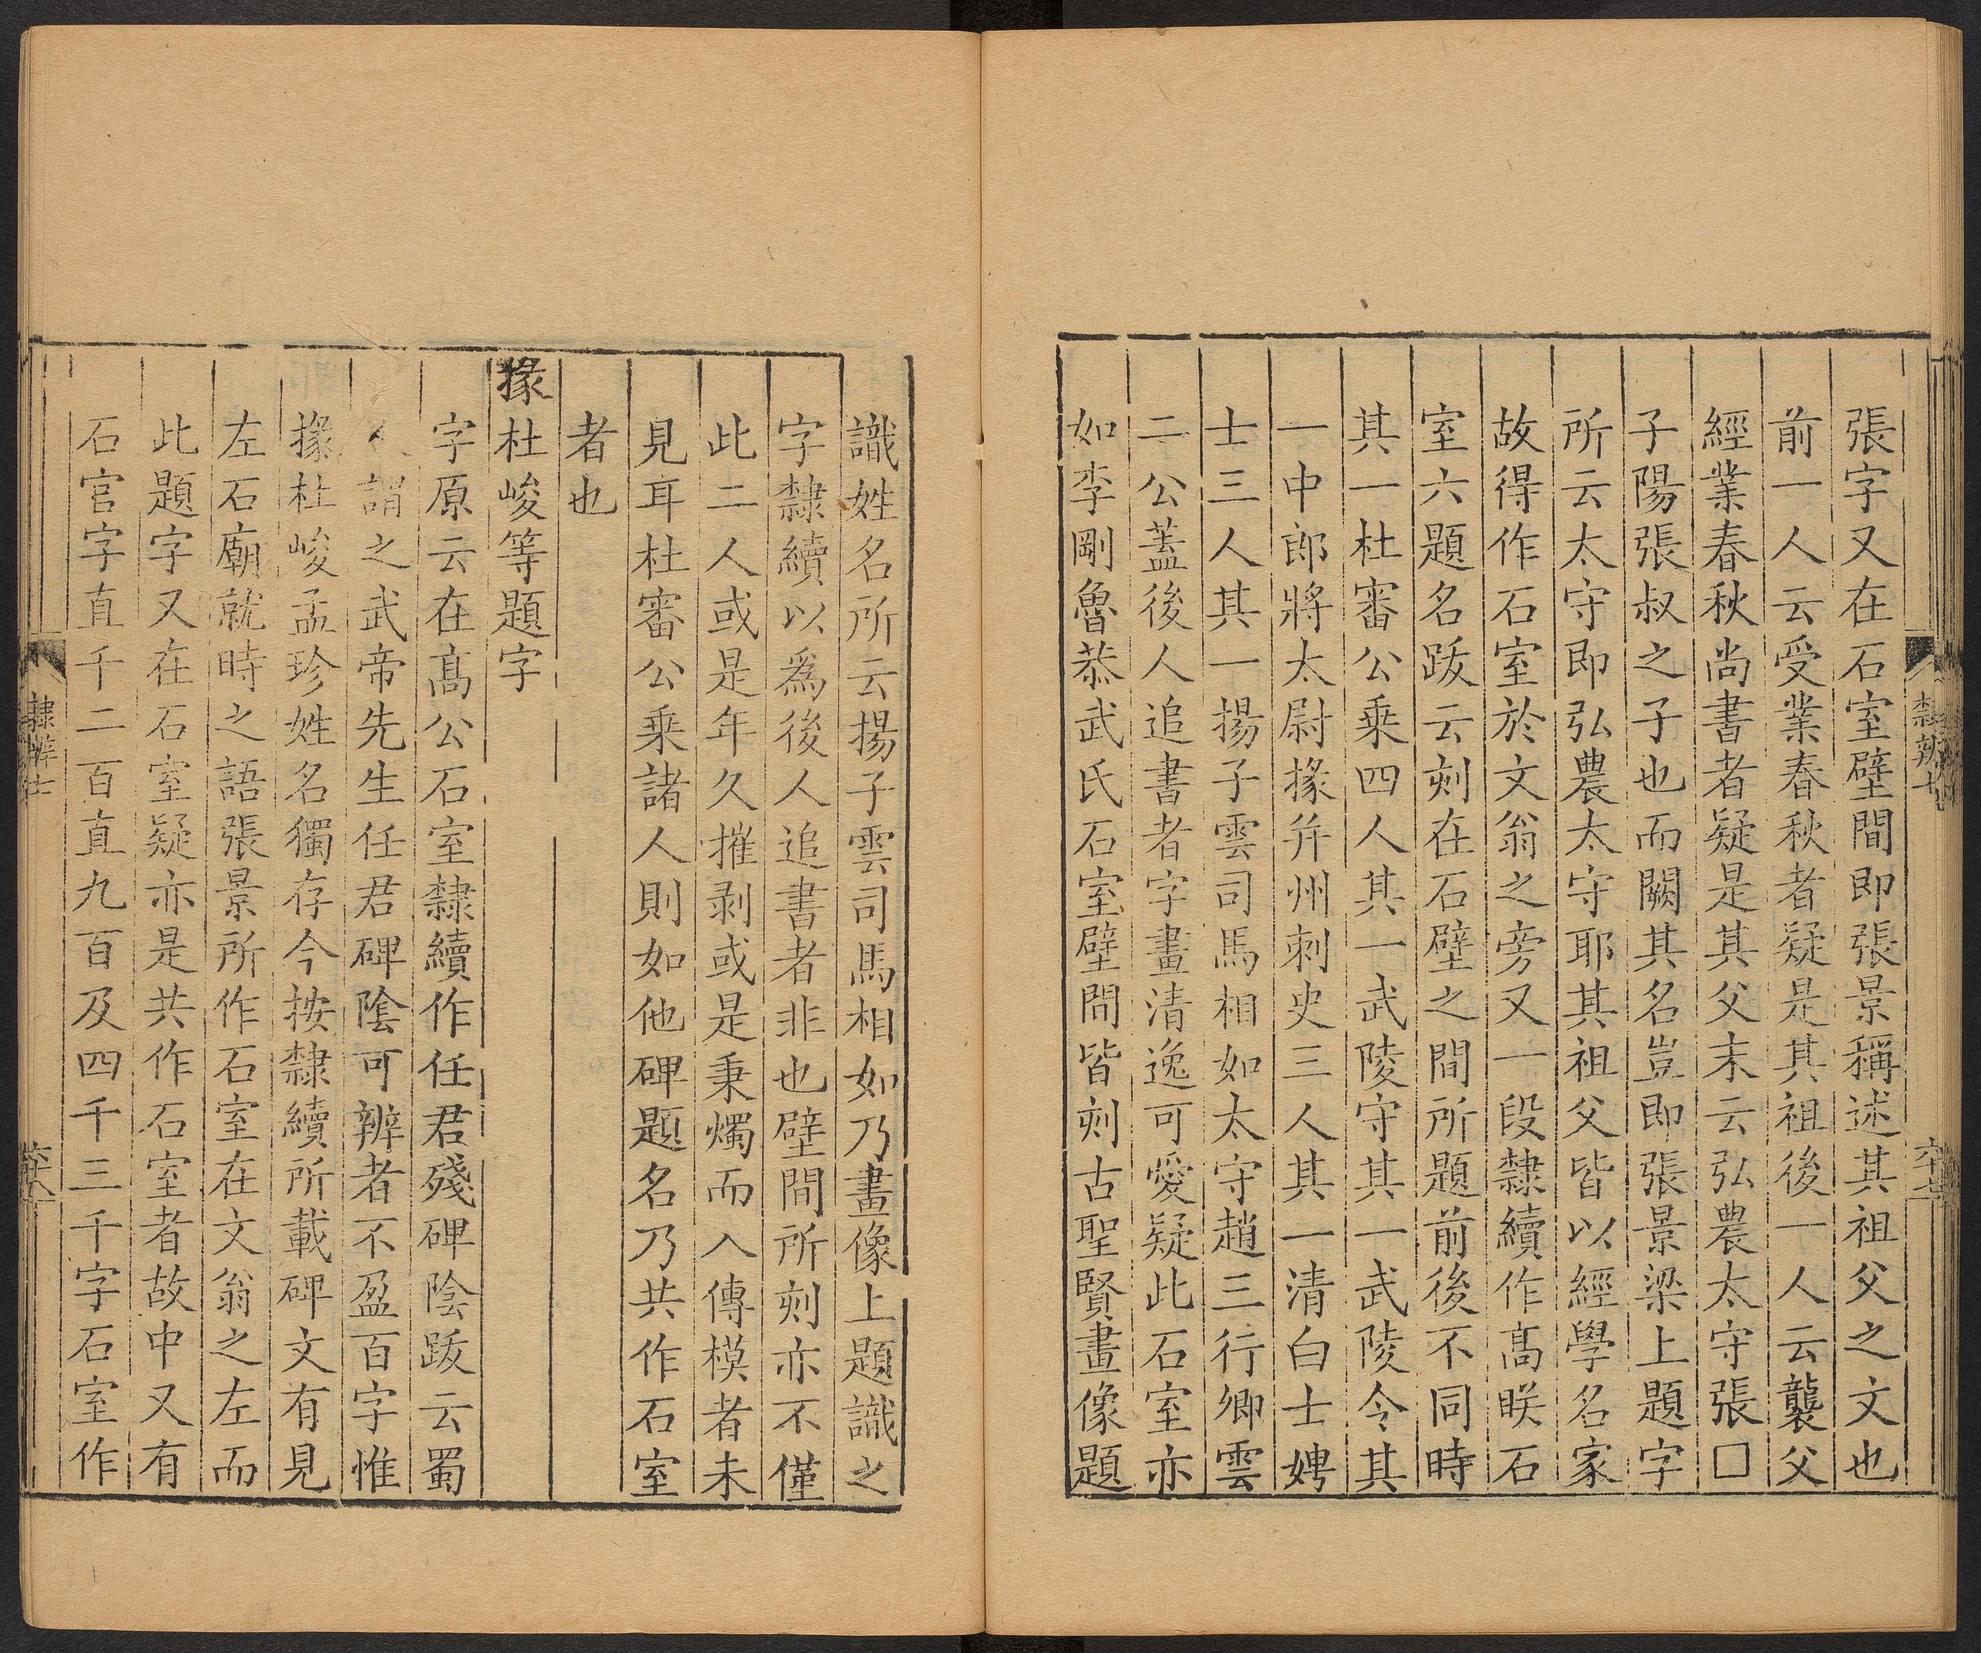 張字又在石室壁間即張景稱述其祖父之文也
前一人云受業春秋者疑是其祖後一人云襲父
經業春秋尚書者疑是其父末云弘農太守張□
子陽張叔之子也而闕其名豈即張景梁上題字
所云太守即弘農太守耶其祖父皆以經學名家
故得作石室於文翁之旁又一段隸續作髙眹石
室六題名跋云刻在石壁之間所題前後不同時
其一杜審公乗四人其一武陵守其一武陵令其
一中郎將太尉掾并州刺史三人其一清白士娉
士三人其一揚子雲司馬相如太守趙三行卿雲
二公蓋後人追書者字畫清逸可愛疑此石室亦
如李剛魯恭武氏石室壁間皆刻古聖賢畫像題
隸辨七
六十七
識姓名所云揚子雲司馬相如乃畫像上題識之
字隸續以爲後人追書者非也壁間所刻亦不僅
此二人或是年久摧剥或是秉燭而入傳模者未
見耳杜審公乗諸人則如他碑題名乃共作石室
者也
掾杜峻等題字
字原云在髙公石室隸續作任君殘碑陰跋云蜀
人謂之武帝先生任君碑陰可辨者不盈百字惟
掾杜峻孟珍姓名獨存今按隸續所載碑文有見
左石廟就時之語張景所作石室在文翁之左而
此題字又在石室疑亦是共作石室者故中又有
石官字直千二百直九百及四千三千字石室作
隸辨七